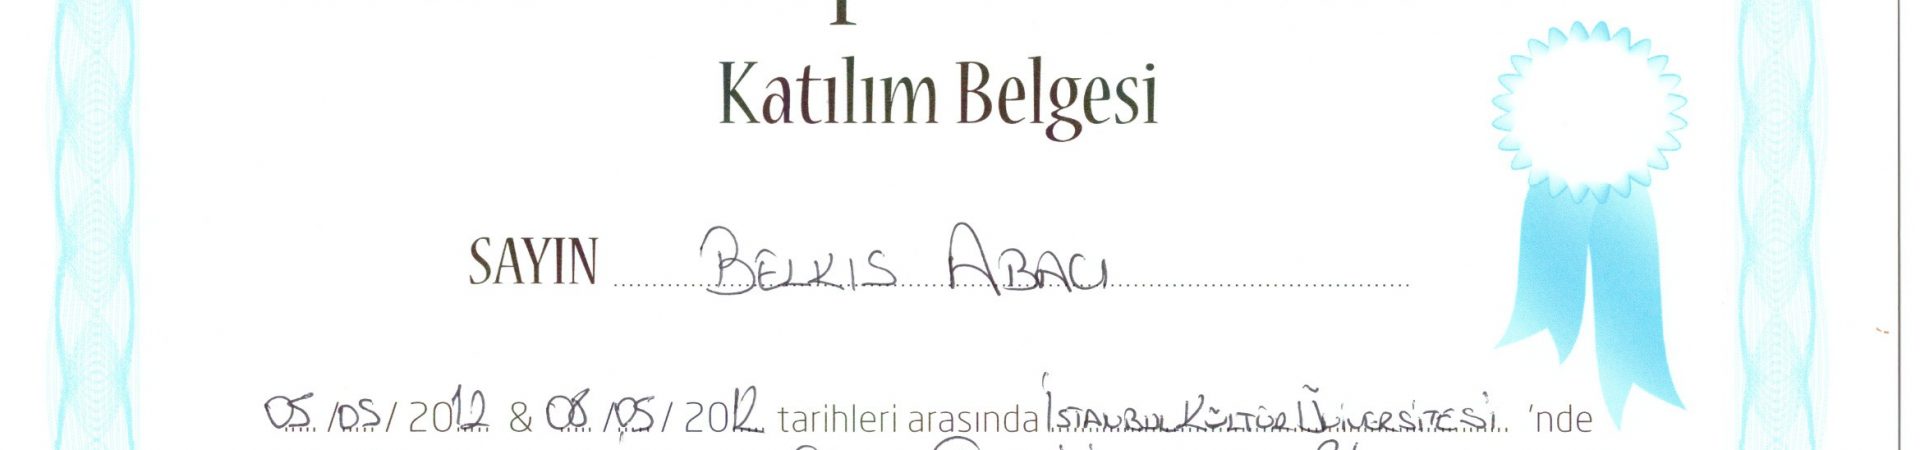 Katılım Belgesi
SAYIN BELKIS ABACI
05/05/2012 & 06/05/2012 tarihleri arasında İSTANBUL KÜLTÜR ÜNİVERSİTESİ 'nde